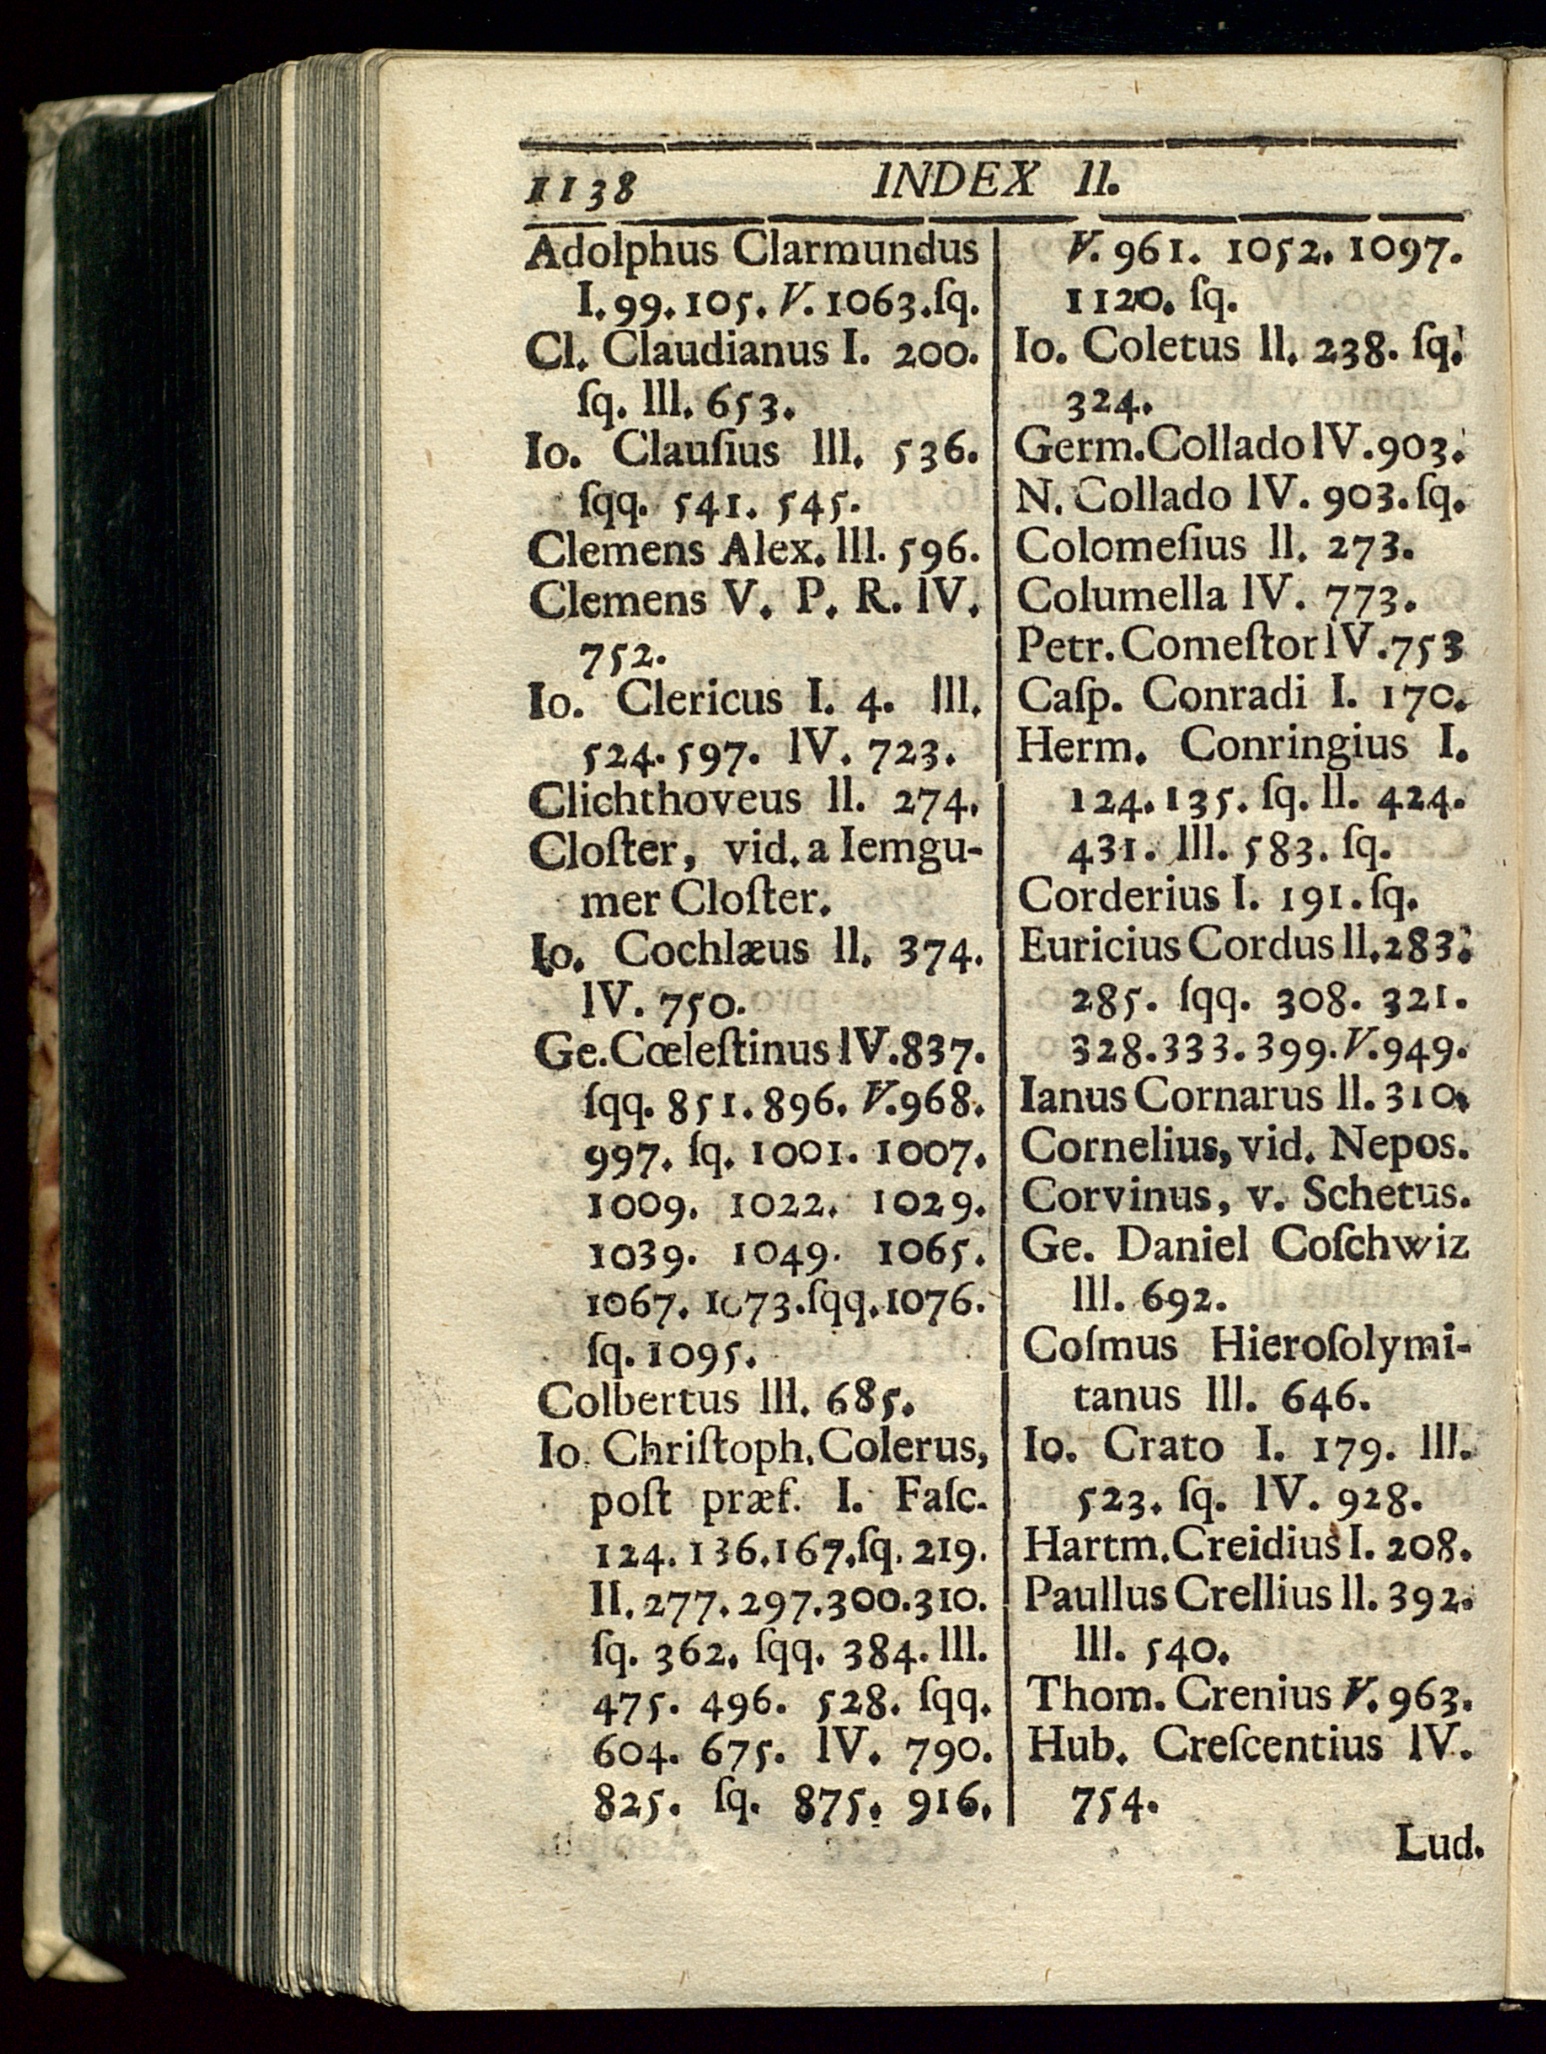 1138 INDEX II.
Adolphus Clarmundus
I. 99. 105. V. 1063. ſq.
Cl. Claudianus I. 200.
ſq. III. 653.
Io. Clauſius III. 536.
ſqq. 541. 545.
Clemens Alex. III. 596.
Clemens V. P. R. IV.
752.
Io. Clericus I. 4. III.
524. 597. IV. 723.
Clichthoveus II. 274.
Cloſter, vid. a Iemgu-
mer Cloſter.
Io. Cochlæus II. 374.
IV. 750.
Ge. Cœleſtinus IV. 837.
ſqq. 851. 896. V. 968.
997. ſq. 1001. 1007.
1009. 1022. 1029.
1039. 1049. 1065.
1067. 1073. ſqq. 1076.
ſq. 1095.
Colbertus III. 685.
Io. Chriſtoph. Colerus,
poſt præf. I. Faſc.
124. 136. 167. ſq. 219.
II. 277. 297. 300. 310.
ſq. 362. ſqq. 384. III.
475. 496. 528. ſqq.
604. 675. IV. 790.
825. ſq. 875. 916.
V. 961. 1052. 1097.
1120. ſq.
Io. Coletus II. 238. ſq.
324.
Germ. Collado IV. 903.
N. Collado IV. 903. ſq.
Colomeſius II. 273.
Columella IV. 773.
Petr. Comeſtor IV. 753
Caſp. Conradi I. 170.
Herm. Conringius I.
124. 135. ſq. II. 424.
431. III. 583. ſq.
Corderius I. 191. ſq.
Euricius Cordus II. 283.
285. ſqq. 308. 321.
328. 333. 399. V. 949.
Ianus Cornarus II. 310.
Cornelius, vid. Nepos.
Corvinus, v. Schetus.
Ge. Daniel Coſchwiz
III. 692.
Coſmus Hieroſolymi-
tanus III. 646.
Io. Crato I. 179. III.
523. ſq. IV. 928.
Hartm. Creidius I. 208.
Paullus Crellius II. 392.
III. 540.
Thom. Crenius V. 963.
Hub. Creſcentius IV.
754.
Lud.